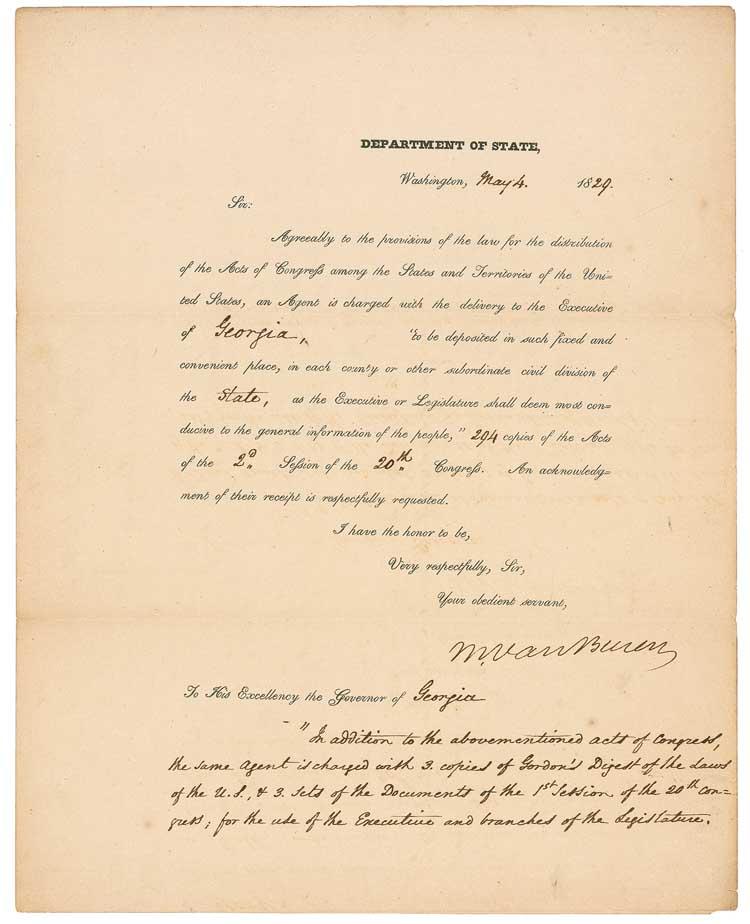 DEPARTMENT OF STATE,
Washington, May 4. 1829.
Sir:
Agreeably to the provisions of the law for the distribution
of the Acts of Congreſs among the States and Territories of the Uni=
ted States, an Agent is charged with the delivery to the Executive
of Georgia, "to be deposited in such fixed and
convenient place, in each county or other subordinate civil division of
the State, as the Executive or Legislature shall deem most con=
ducive to the general information of the people," 294 copies of the Acts
of the 2d. Seſsion of the 20th. Congreſs. An acknowledg=
ment of their receipt is respectfully requested.
I have the honor to be,
Very respectfully, Sir,
Your obedient servant,
M. Van Buren
To His Excellency the Governor of Georgia
" In addition to the abovementioned acts of Congreſs,
the same Agent is charged with 3. copies of Gordon's Digest of the Laws
of the U.S., & 3. Sets of the Documents of the 1st Seſsion of the 20th Con=
greſs; for the use of the Executive and branches of the Legislature.